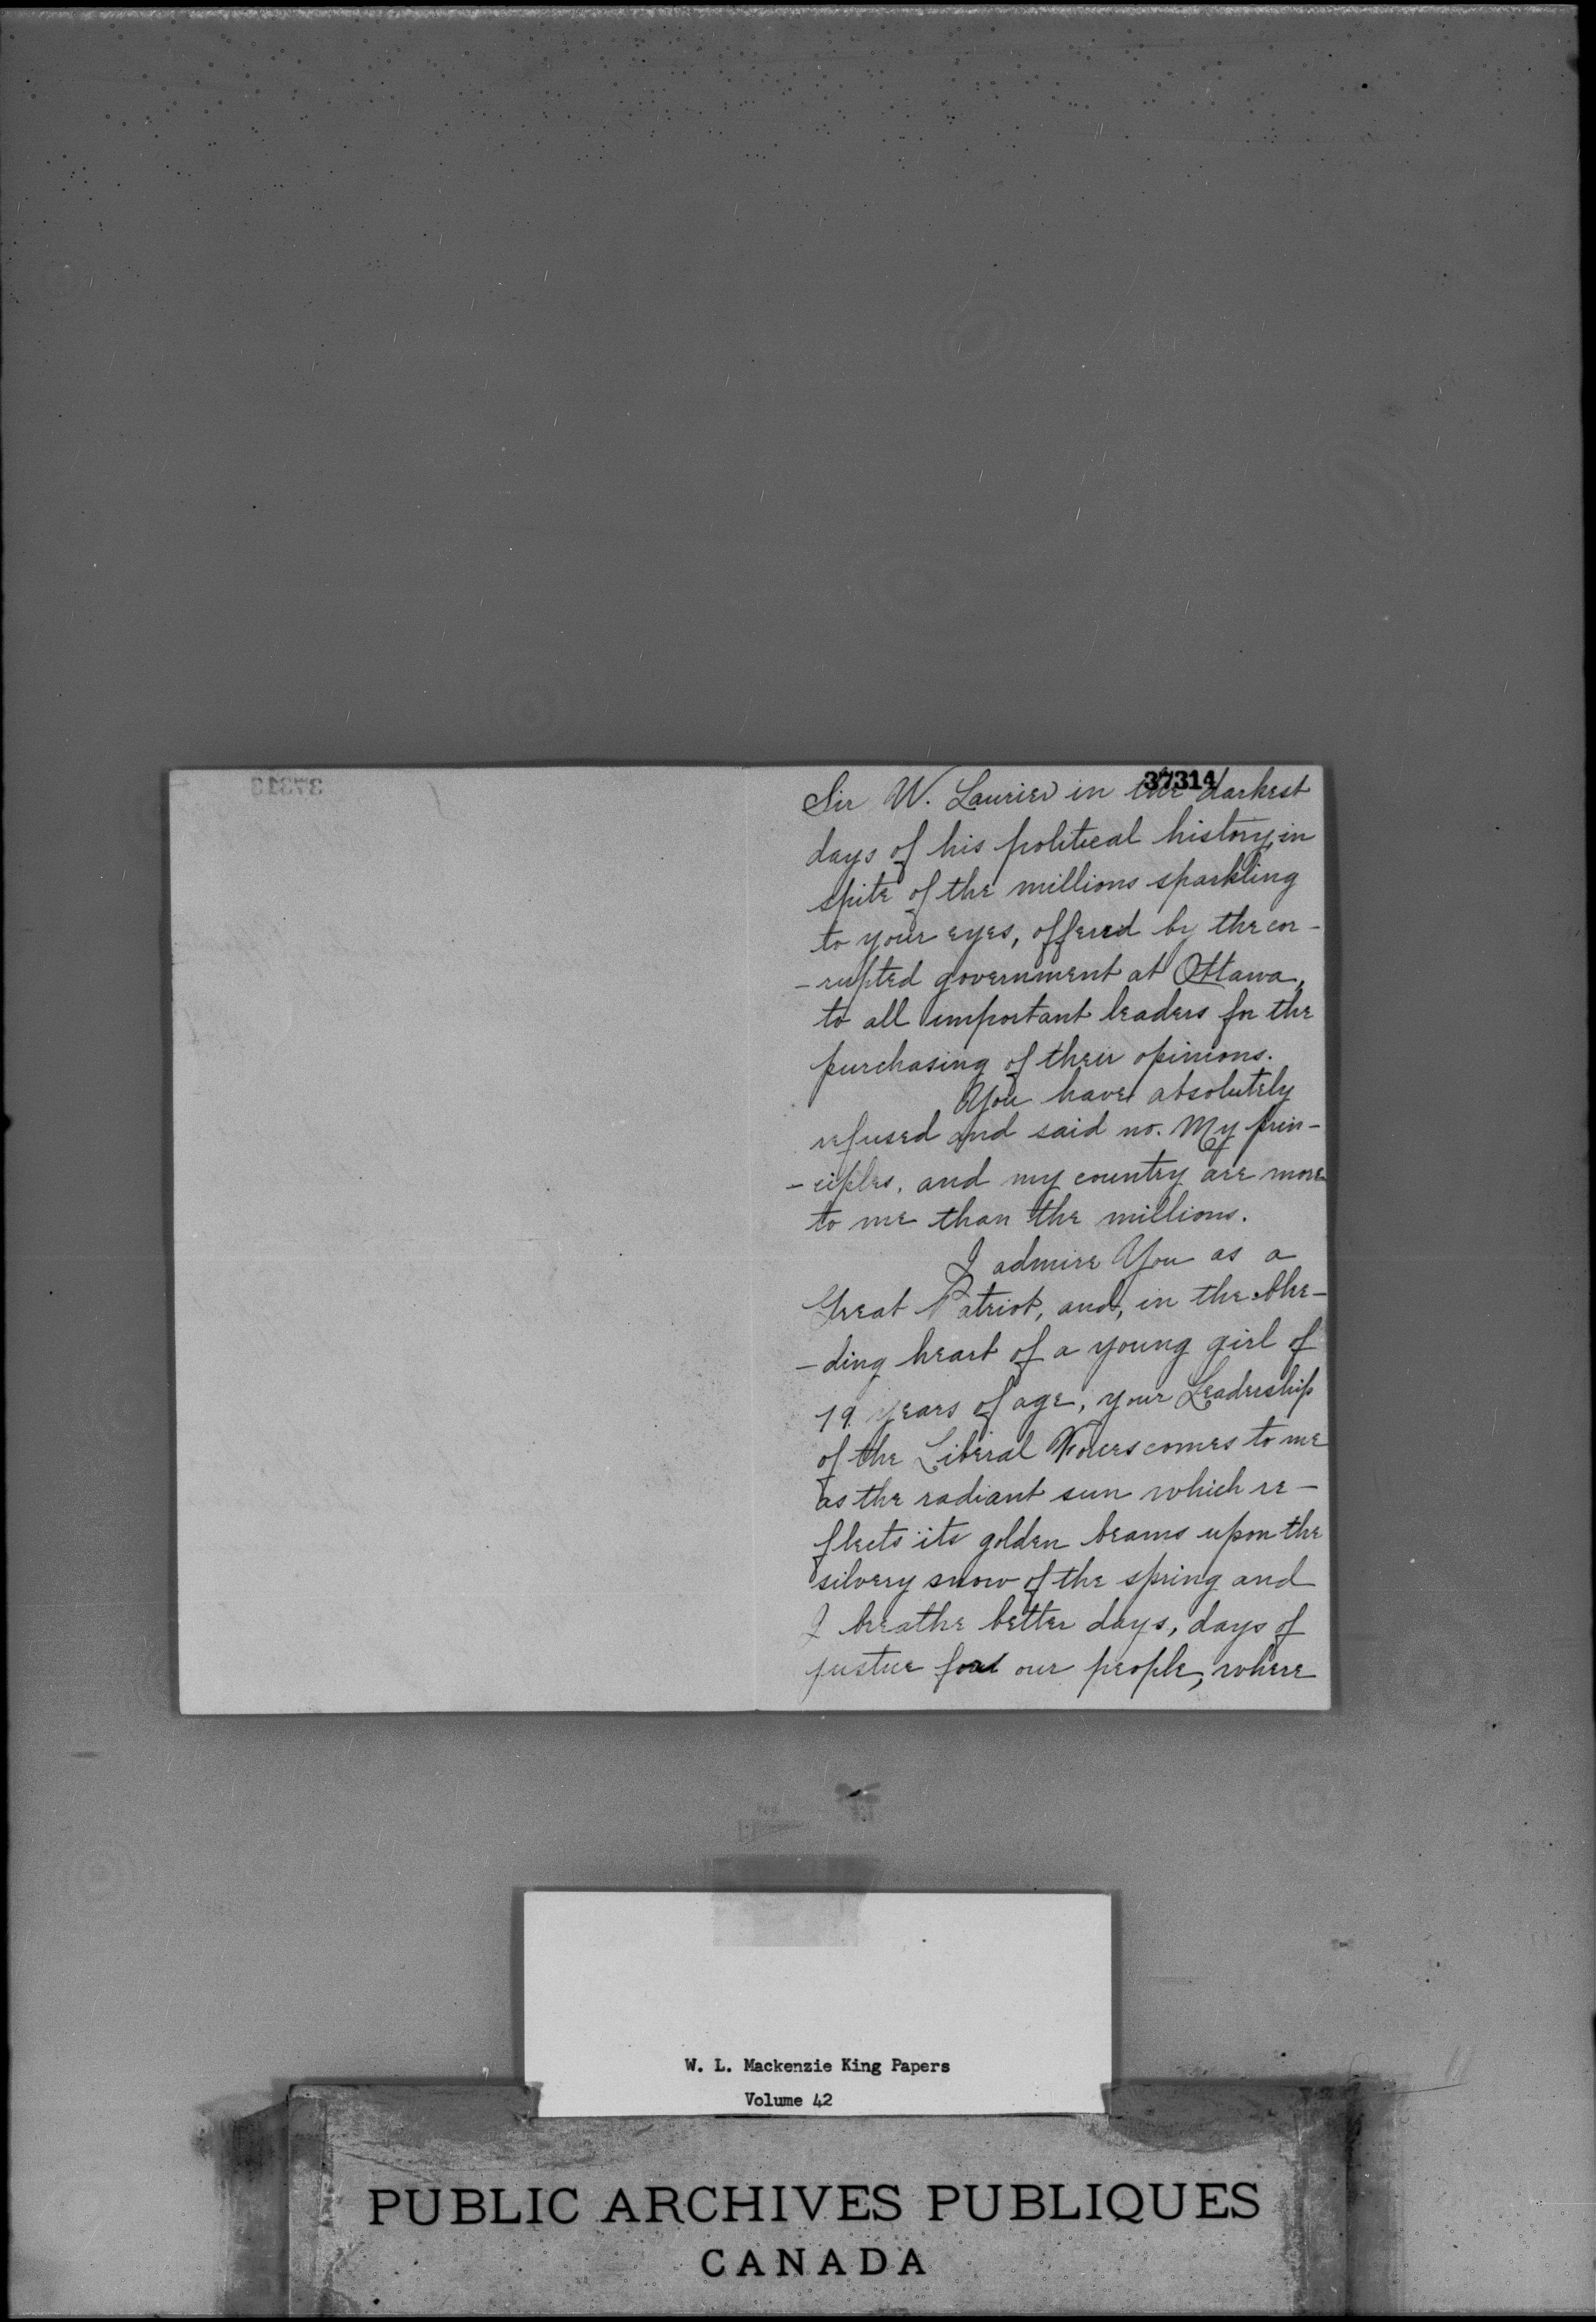 37313
37314
Sir W. Laurier in the darkest
days of his political history, in
spite of the millions sparkling
to your eyes, offered by the cor-
-rupted government at Ottawa,
to all important leaders for the
purchasing of their opinions.
You have absolutely
refused and said no. My prin-
-ciples, and my country are more
to me than the millions.
I admire You as a
Great Patriot, and, in the ble-
-ding heart of a young girl of
19 years of age, your Leadership
of the Liberal Forces comes to me
as the radiant sun which re-
flects its golden beams upon the
silvery snow of the spring and
I breathe better days, days of
justice for our people, where
W. L. Mackenzie King Papers
Volume 42
PUBLIC ARCHIVES PUBLIQUES
CANADA